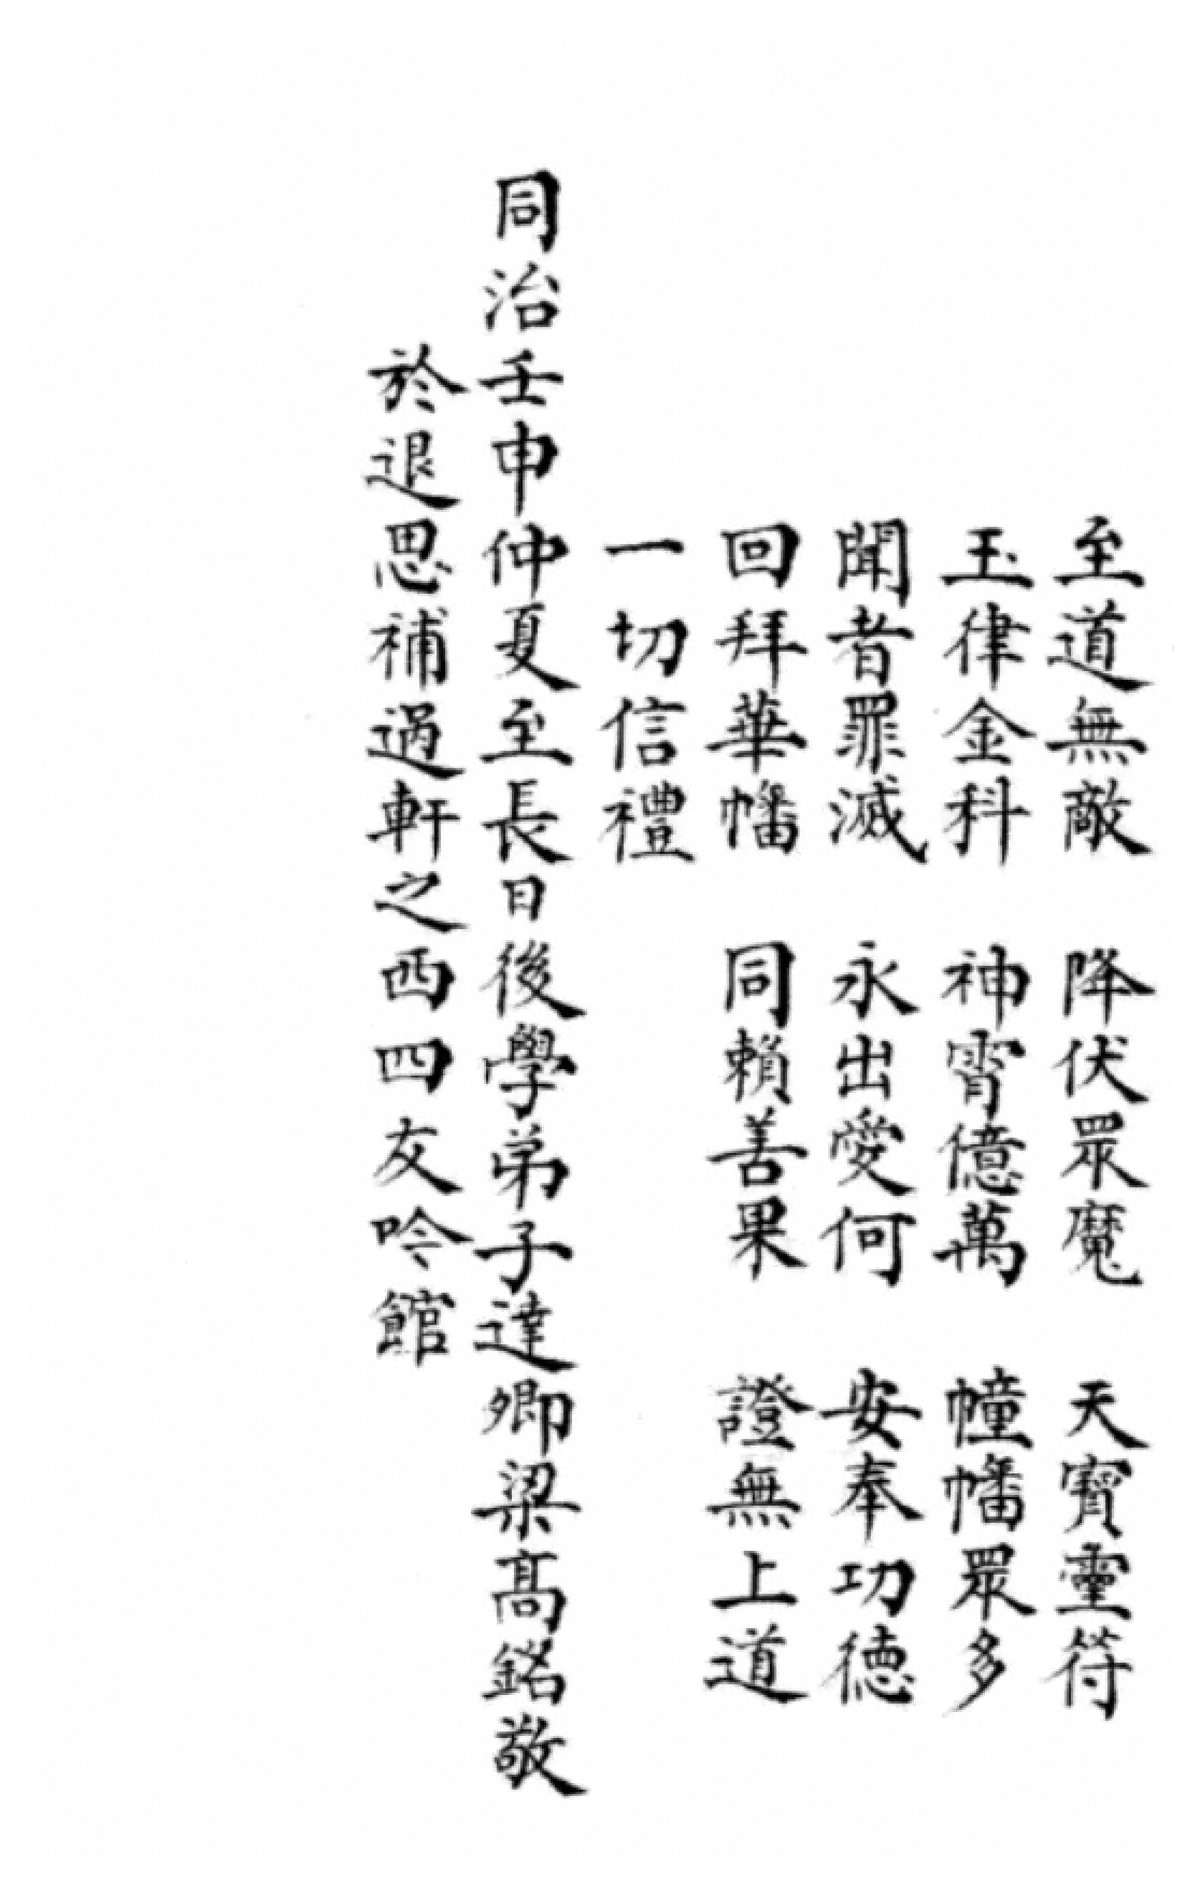 至道無敵　降伏眾魔　天寶靈符
玉律金科　神霄億萬　幢幡眾多
聞者罪滅　永出愛何　安奉功德
回拜華幡　同賴善果　證無上道
一切信禮
同治壬申仲夏至長日後學弟子達卿梁高銘敬
於退思補過軒之西四友吟館